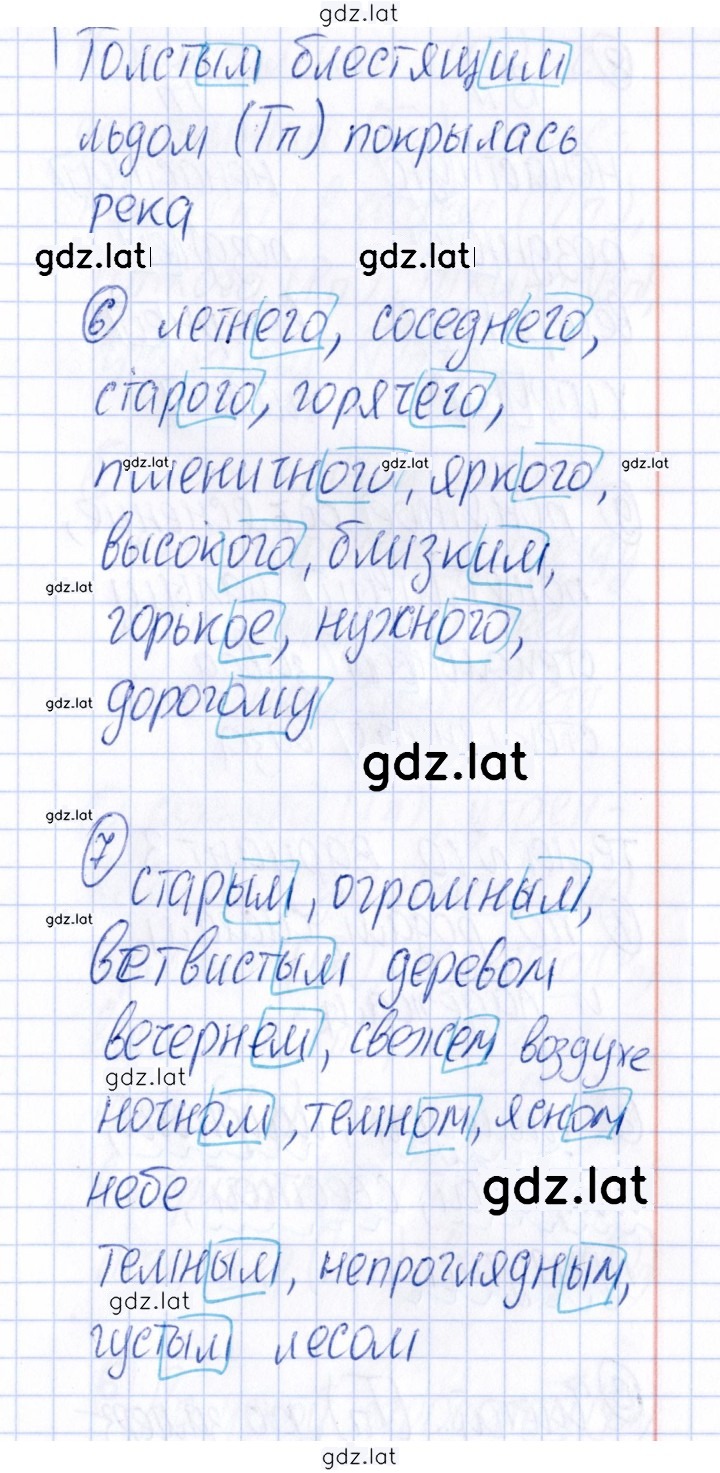 gdz.lat
Толстым блестящим
льдом (Тп) покрылась
река
gdz.lat gdz.lat
6 летнего, соседнего,
старого, горячего,
пшеничного, яркого,
gdz.lat gdz.lat gdz.lat
высокого, близким,
gdz.lat
горькое, нужного,
gdz.lat дорогому
gdz.lat
gdz.lat
7
старым, огромным,
gdz.lat
ветвистым деревом
вечернем, свежем воздухе
gdz.lat
ночном, темном, ясном
небе gdz.lat
темным, непроглядным,
gdz.lat
густым лесом
gdz.lat